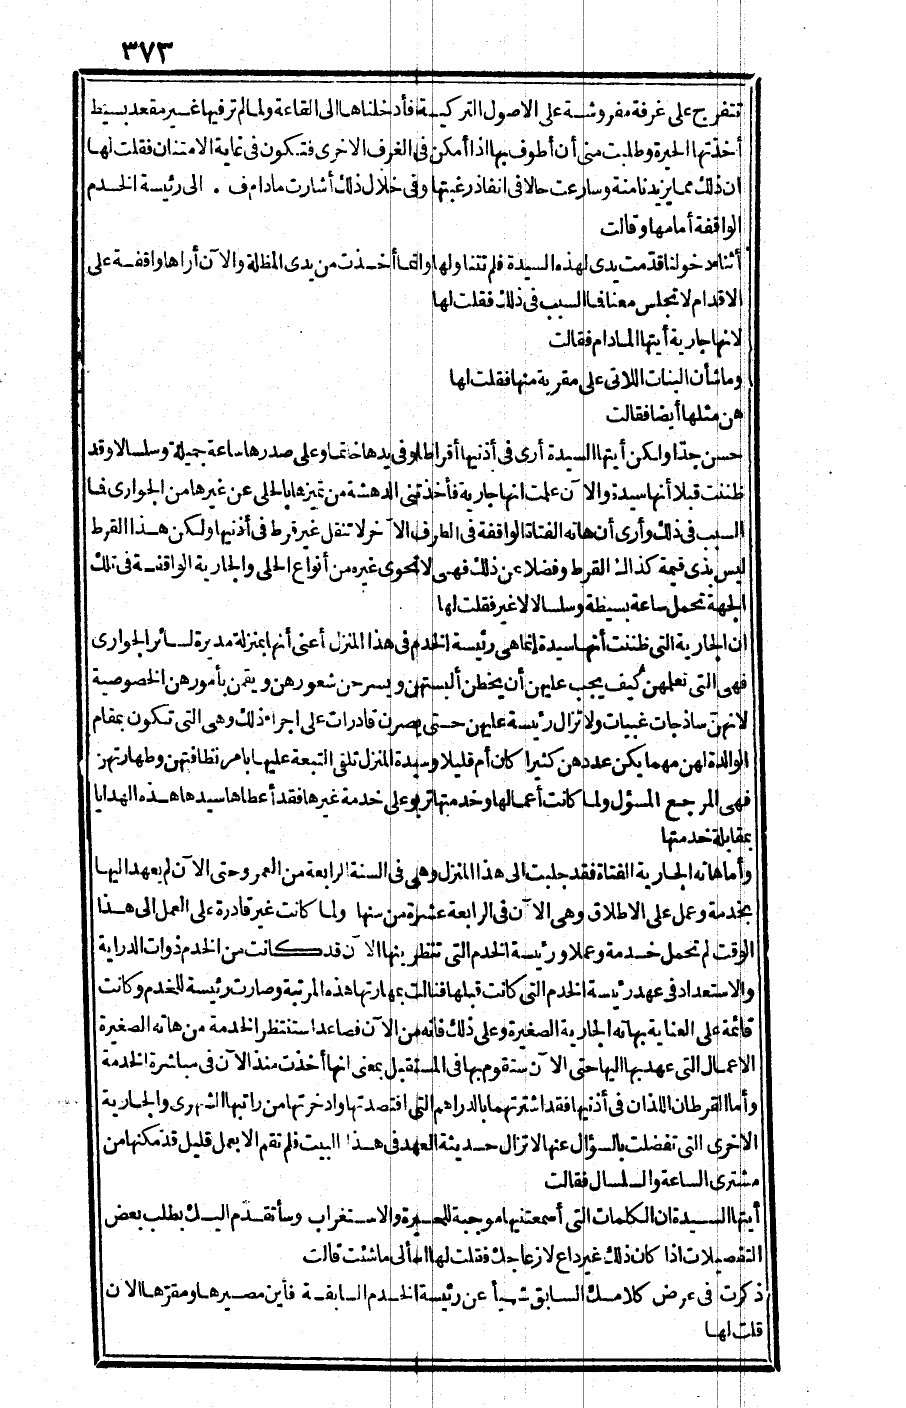 ٣٧٣
تتفرج على غرفة مفروشة على الاصول التركية فأدخلناها الى القاعة ولما لم تر فيها غير مقعد بسيط
أخذتها الحيرة وطلبت منى أن أطوف بها اذا أمكن فى الغرف الاخرى فتكون فى غاية الامتنان فقلت لها
ان ذلك مما يزيدنا منة وسارعت حالا فى انفاذ رغبتها وفى خلال ذلك أشارت مادام ف . الى رئيسة الخدم
الواقفة أمامها وقالت
أثناء دخولنا قدّمت يدى لهذه السيدة فلم تتناولها وانما أخذت من يدى المظلة والآن أراها واقفة على
الاقدام لا تجلس معنا فما السبب فى ذلك فقلت لها
لانها جارية أيتها المادام فقالت
وما شأن البنات اللاتى على مقربة منها فقلت لها
هن مثلها أيضا فقالت
حسن جدّا ولكن أيتها السيدة أرى فى أذنيها أقراطا وفى يدها خاتما وعلى صدرها ساعة جميلة وسلسالا وقد
ظننت قبلا أنها سيدة والآن علمت انها جارية فأخذتنى الدهشة من تميزها بالحلى عن غيرها من الجوارى فما
السبب فى ذلك وأرى أن هاته الفتاة الواقفة فى الطرف الآخر لا تنقل غير قرط فى أذنيها ولكن هذا القرط
ليس بذى قيمة كذاك القرط وفضلا عن ذلك فهى لا تحوى غيره من أنواع الحلى والجارية الواقفة فى تلك
الجهة تحمل ساعة بسيطة وسلسالا لا غير فقلت لها
ان الجارية التى ظننت أنها سيدة انما هى رئيسة الخدم فى هذا المنزل أعنى أنها بمنزلة مديرة لسائر الجوارى
فهى التى تعلمهن كيف يجب عليهن أن يخطن ألبستهن ويسرحن شعورهن ويقمن بأمورهن الخصوصية
لانهنّ ساذجات غبيات ولا تزال رئيسة عليهن حتى يصرن قادرات على اجراء ذلك وهى التى تكون بمقام
الوالدة لهن مهما يكن عددهن كثيرا كان أم قليلا وسيدة المنزل تلقى التبعة عليها بامر نظافتهن وطهارتهن
فهى المرجع المسؤل ولما كانت أعمالها وخدمتها تربو على خدمة غيرها فقد أعطاها سيدها هذه الهدايا
بمقابلة خدمتها
وأما هاته الجارية الفتاة فقد جلبت الى هذا المنزل وهى فى السنة الرابعة من العمر وحتى الآن لم يعهد اليها
بخدمة وعمل على الاطلاق وهى الآن فى الرابعة عشرة من سنها ولما كانت غير قادرة على العمل الى هذا
الوقت لم تحمل خدمة وعملا ورئيسة الخدم التى تنظرينها الآن قد كانت من الخدم ذوات الدراية
والاستعداد فى عهد رئيسة الخدم التى كانت قبلها فنالت بمهارتها هذه المرتبة وصارت رئيسة للخدم وكانت
قائمة على العناية بهاته الجارية الصغيرة وعلى ذلك فانه من الآن فصاعدا ستنتظر الخدمة من هاته الصغيرة
الاعمال التى عهد بها اليها حتى الآن ستقوم بها فى المستقبل بمعنى انها أخذت منذ الآن فى مباشرة الخدمة
وأما القرطان اللذان فى أذنيها فقد اشترتهما بالدراهم التى اقتصدتها وادخرتها من راتبها الشهرى والجارية
الاخرى التى تفضلت بالسؤال عنها لا تزال حديثة العهد فى هذا البيت فلم تقم الا بعمل قليل قد مكنها من
مشترى الساعة والسلسال فقالت
أيتها السيدة ان الكلمات التى أسمعتنيها موجبة للحيرة والاستغراب وسأتقدّم اليك بطلب بعض
التفصيلات اذا كان ذلك غير داع لازعاجك فقلت لها اسألى ما شئت قالت
ذكرت فى عرض كلامك السابق شيأ عن رئيسة الخدم السابقة فأين مصيرها ومقرّها الآن
قلت لها